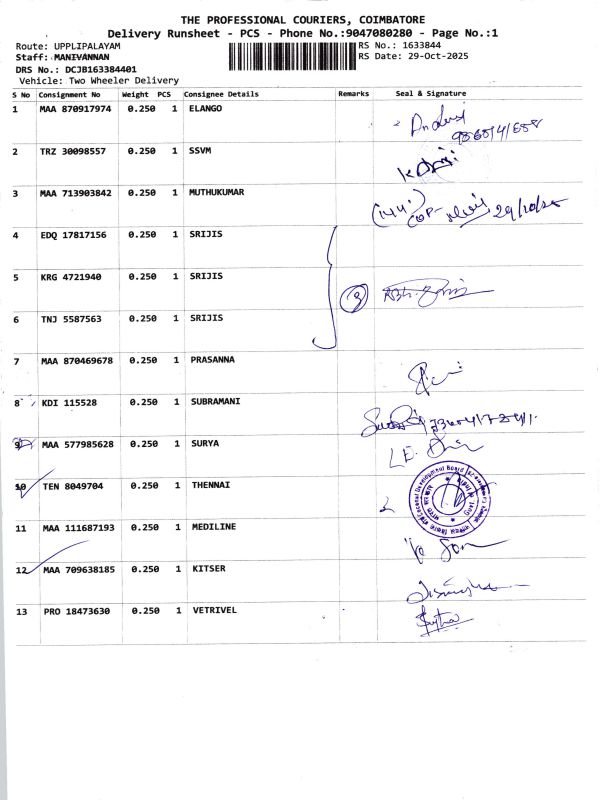 THE PROFESSIONAL COURIERS, COIMBATORE
Delivery Runsheet - PCS - Phone No.:9047080280 - Page No.:1
Route: UPPLIPALAYAM RS No.: 1633844
Staff: MANIVANNAN RS Date: 29-Oct-2025
DRS No.: DCJB163384401
Vehicle: Two Wheeler Delivery
S No Consignment No Weight PCS Consignee Details Remarks Seal & Signature
1 MAA 870917974 0.250 1 ELANGO
2 TRZ 30098557 0.250 1 SSVM
3 MAA 713903842 0.250 1 MUTHUKUMAR
29/10/25
4 EDQ 17817156 0.250 1 SRIJIS
5 KRG 4721940 0.250 1 SRIJIS
3
6 TNJ 5587563 0.250 1 SRIJIS
7 MAA 870469678 0.250 1 PRASANNA
8 KDI 115528 0.250 1 SUBRAMANI
9 MAA 577985628 0.250 1 SURYA
10 TEN 8049704 0.250 1 THENNAI
11 MAA 111687193 0.250 1 MEDILINE
12 MAA 709638185 0.250 1 KITSER
13 PRO 18473630 0.250 1 VETRIVEL